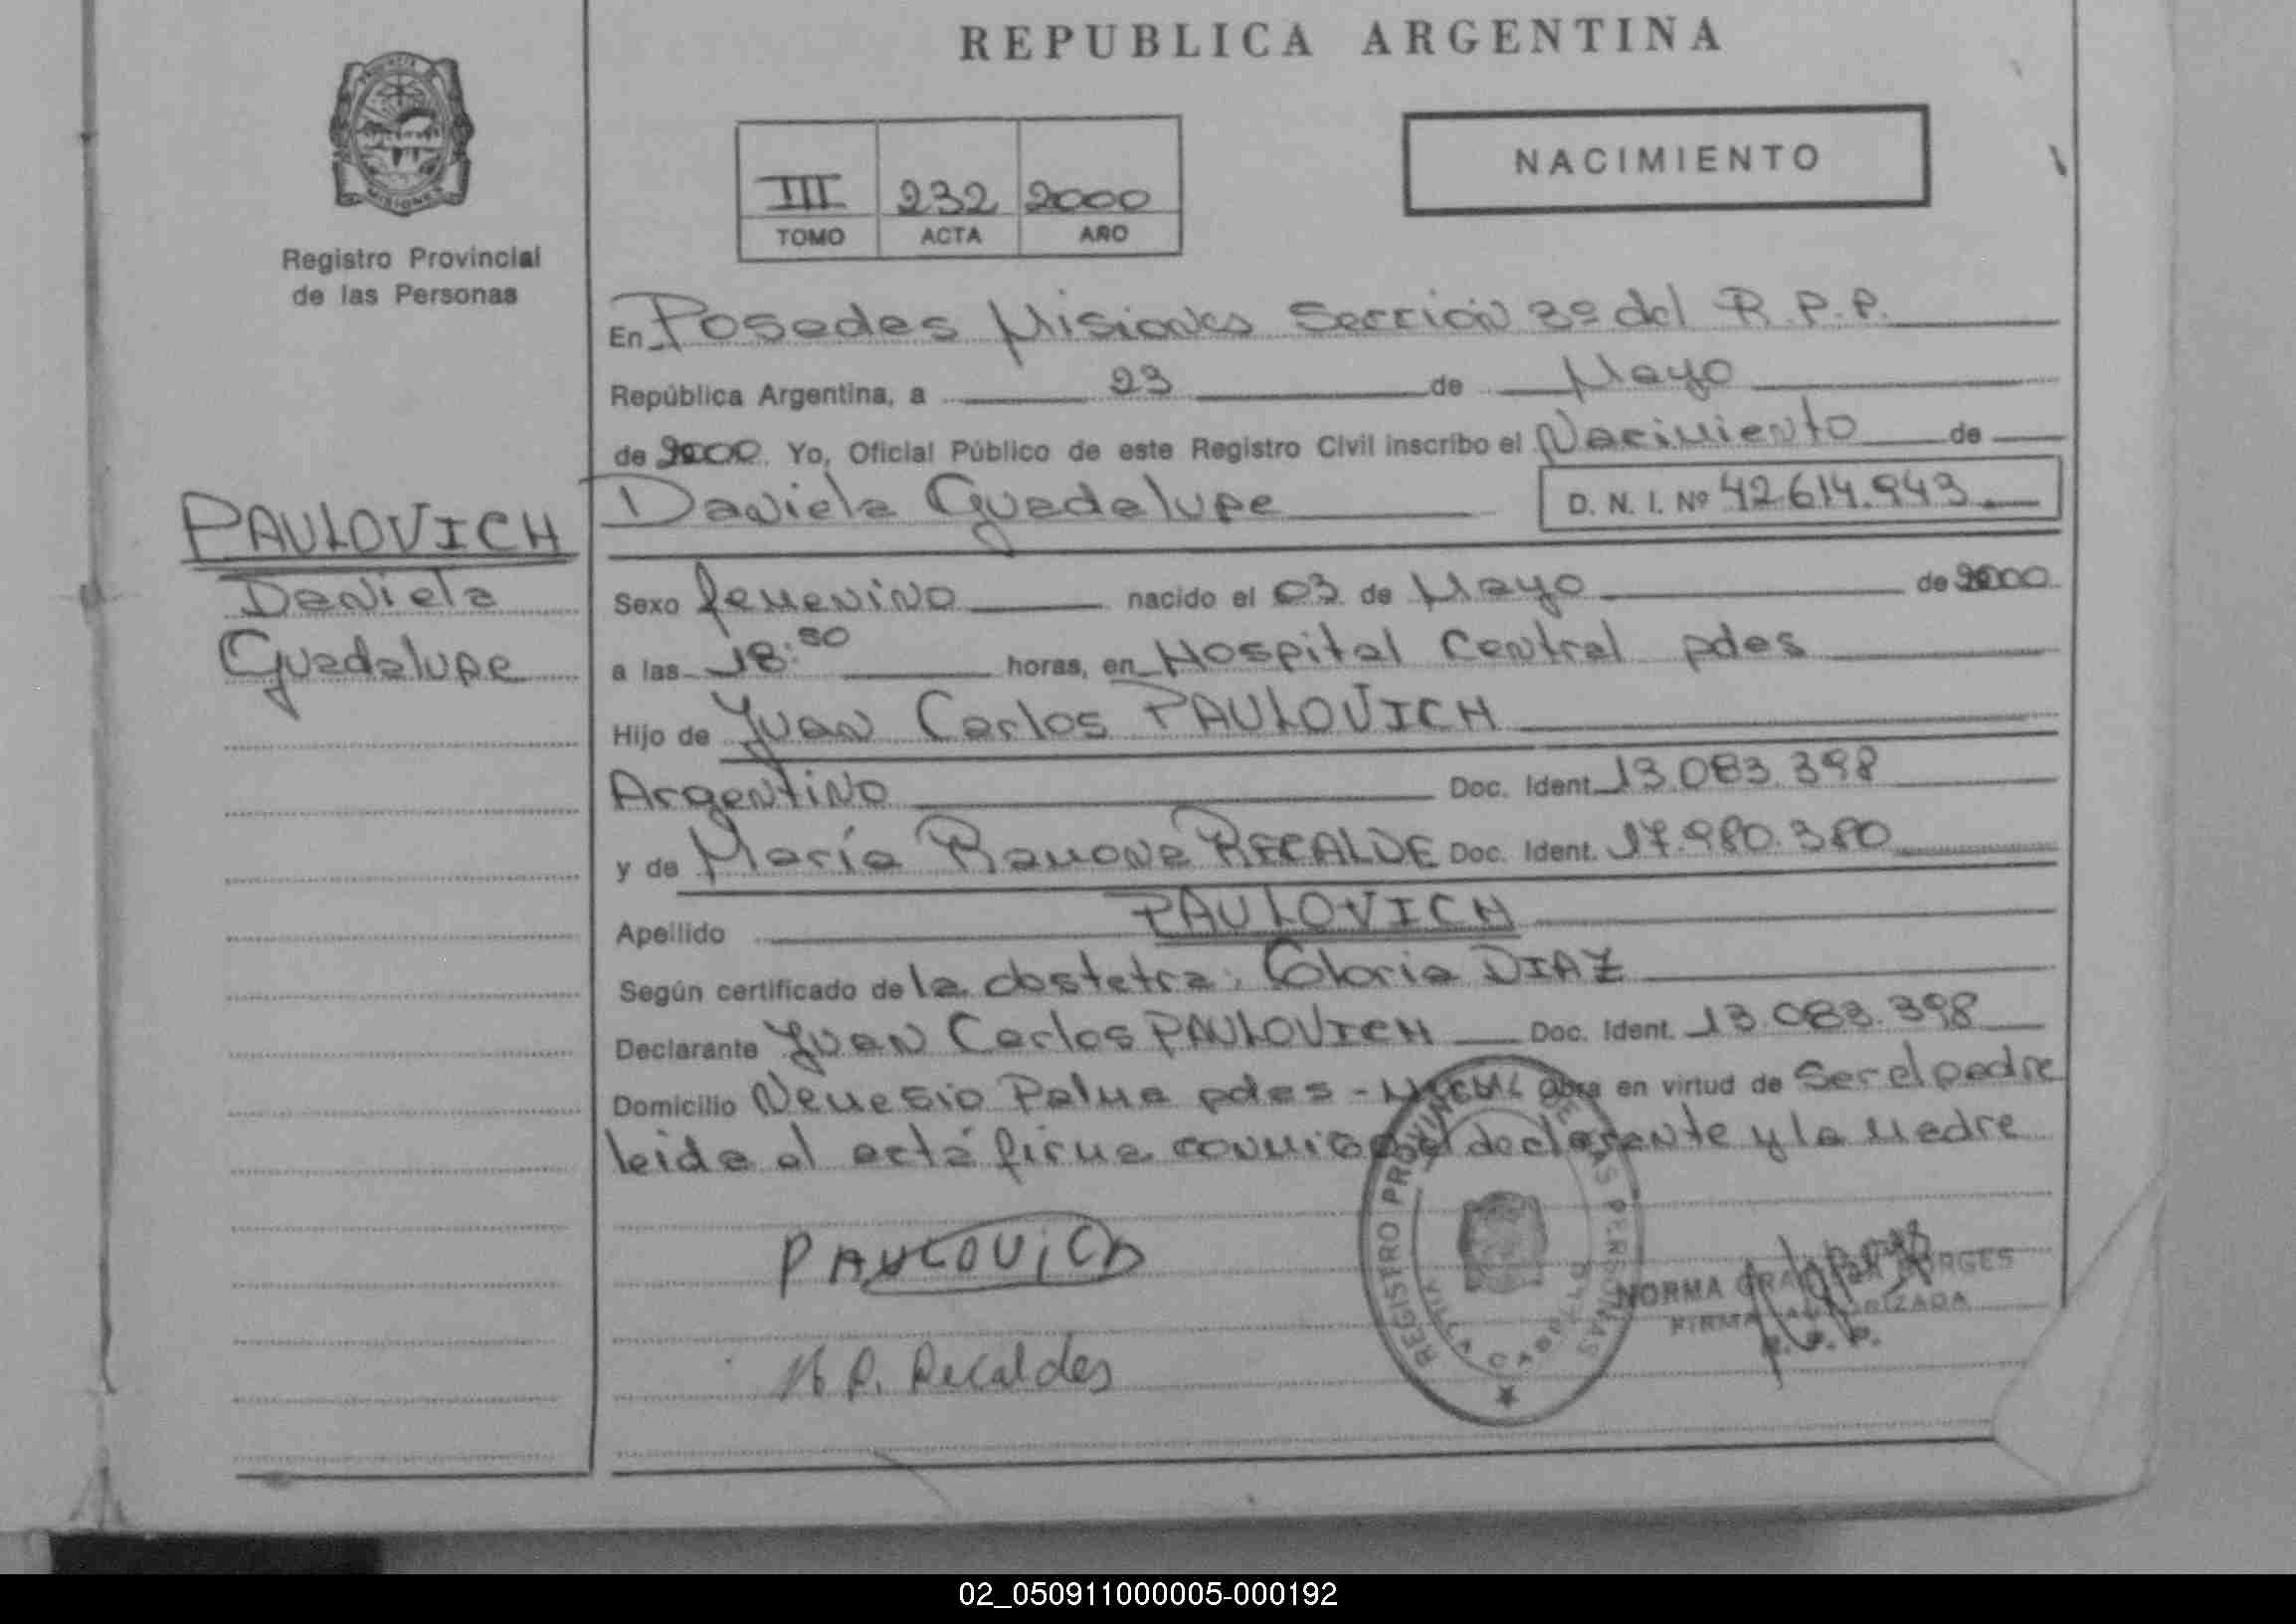 REPUBLICA ARGENTINA
PROVINCIA DE
MISIONES
Registro Provincial
de las Personas
III 232 2000
TOMO ACTA AÑO
NACIMIENTO
En Posadas Misiones Sección 3º del R.P.P.
República Argentina, a 23 de Mayo
de 2000. Yo, Oficial Público de este Registro Civil inscribo el Nacimiento de
Daniela Guadalupe D. N. I. Nº 42.614.943
PAULOVICH
Daniela
Guadalupe
Sexo femenino nacido el 03 de Mayo de 2000
a las 18:30 horas, en Hospital Central pdas
Hijo de Juan Carlos PAULOVICH
Argentino Doc. Ident. 13.083.398
y de María Ramona RECALDE Doc. Ident. 17.980.380
Apellido PAULOVICH
Según certificado de la obstetra: Gloria DIAZ
Declarante Juan Carlos PAULOVICH Doc. Ident. 13.083.398
Domicilio Nemesio Palma pdas - Obra en virtud de Ser el padre
leida el acta firma conmigo el declarante y la madre
PAULOVICH
REGISTRO PROVINCIAL DE LAS PERSONAS
NORMA BORGES
FIRMA AUTORIZADA
R. P. P.
M R. Recaldes
02_050911000005-000192